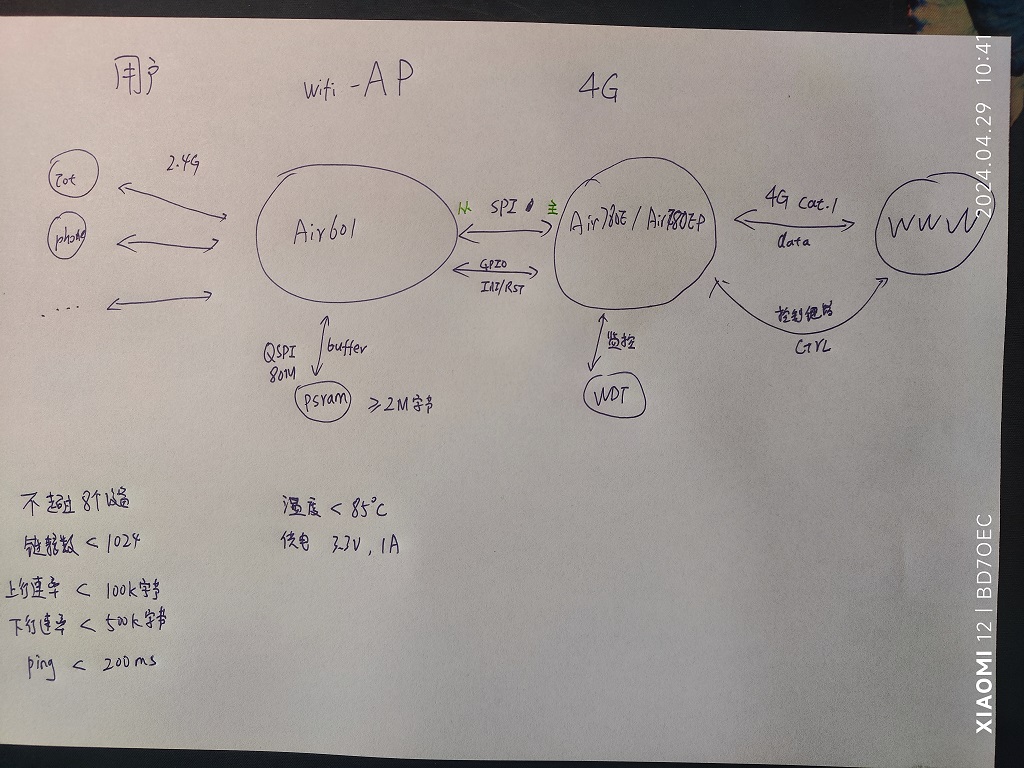 用户
wifi-AP
4G
Iot
2.4G
phone
....
Air601
从 SPI 主
GPIO
INT/RST
Air780E/Air780EP
4G cat.1
data
WWW
控制链路
CTRL
QSPI
80M
buffer
psram
≥2M字节
监控
WDT
不超过8个设备
链接数<1024
上行速率<100k字节
下行速率<500k字节
ping<200ms
温度<85℃
供电 3.3V,1A
2024.04.29 10:41
XIAOMI 12 | BD7OEC